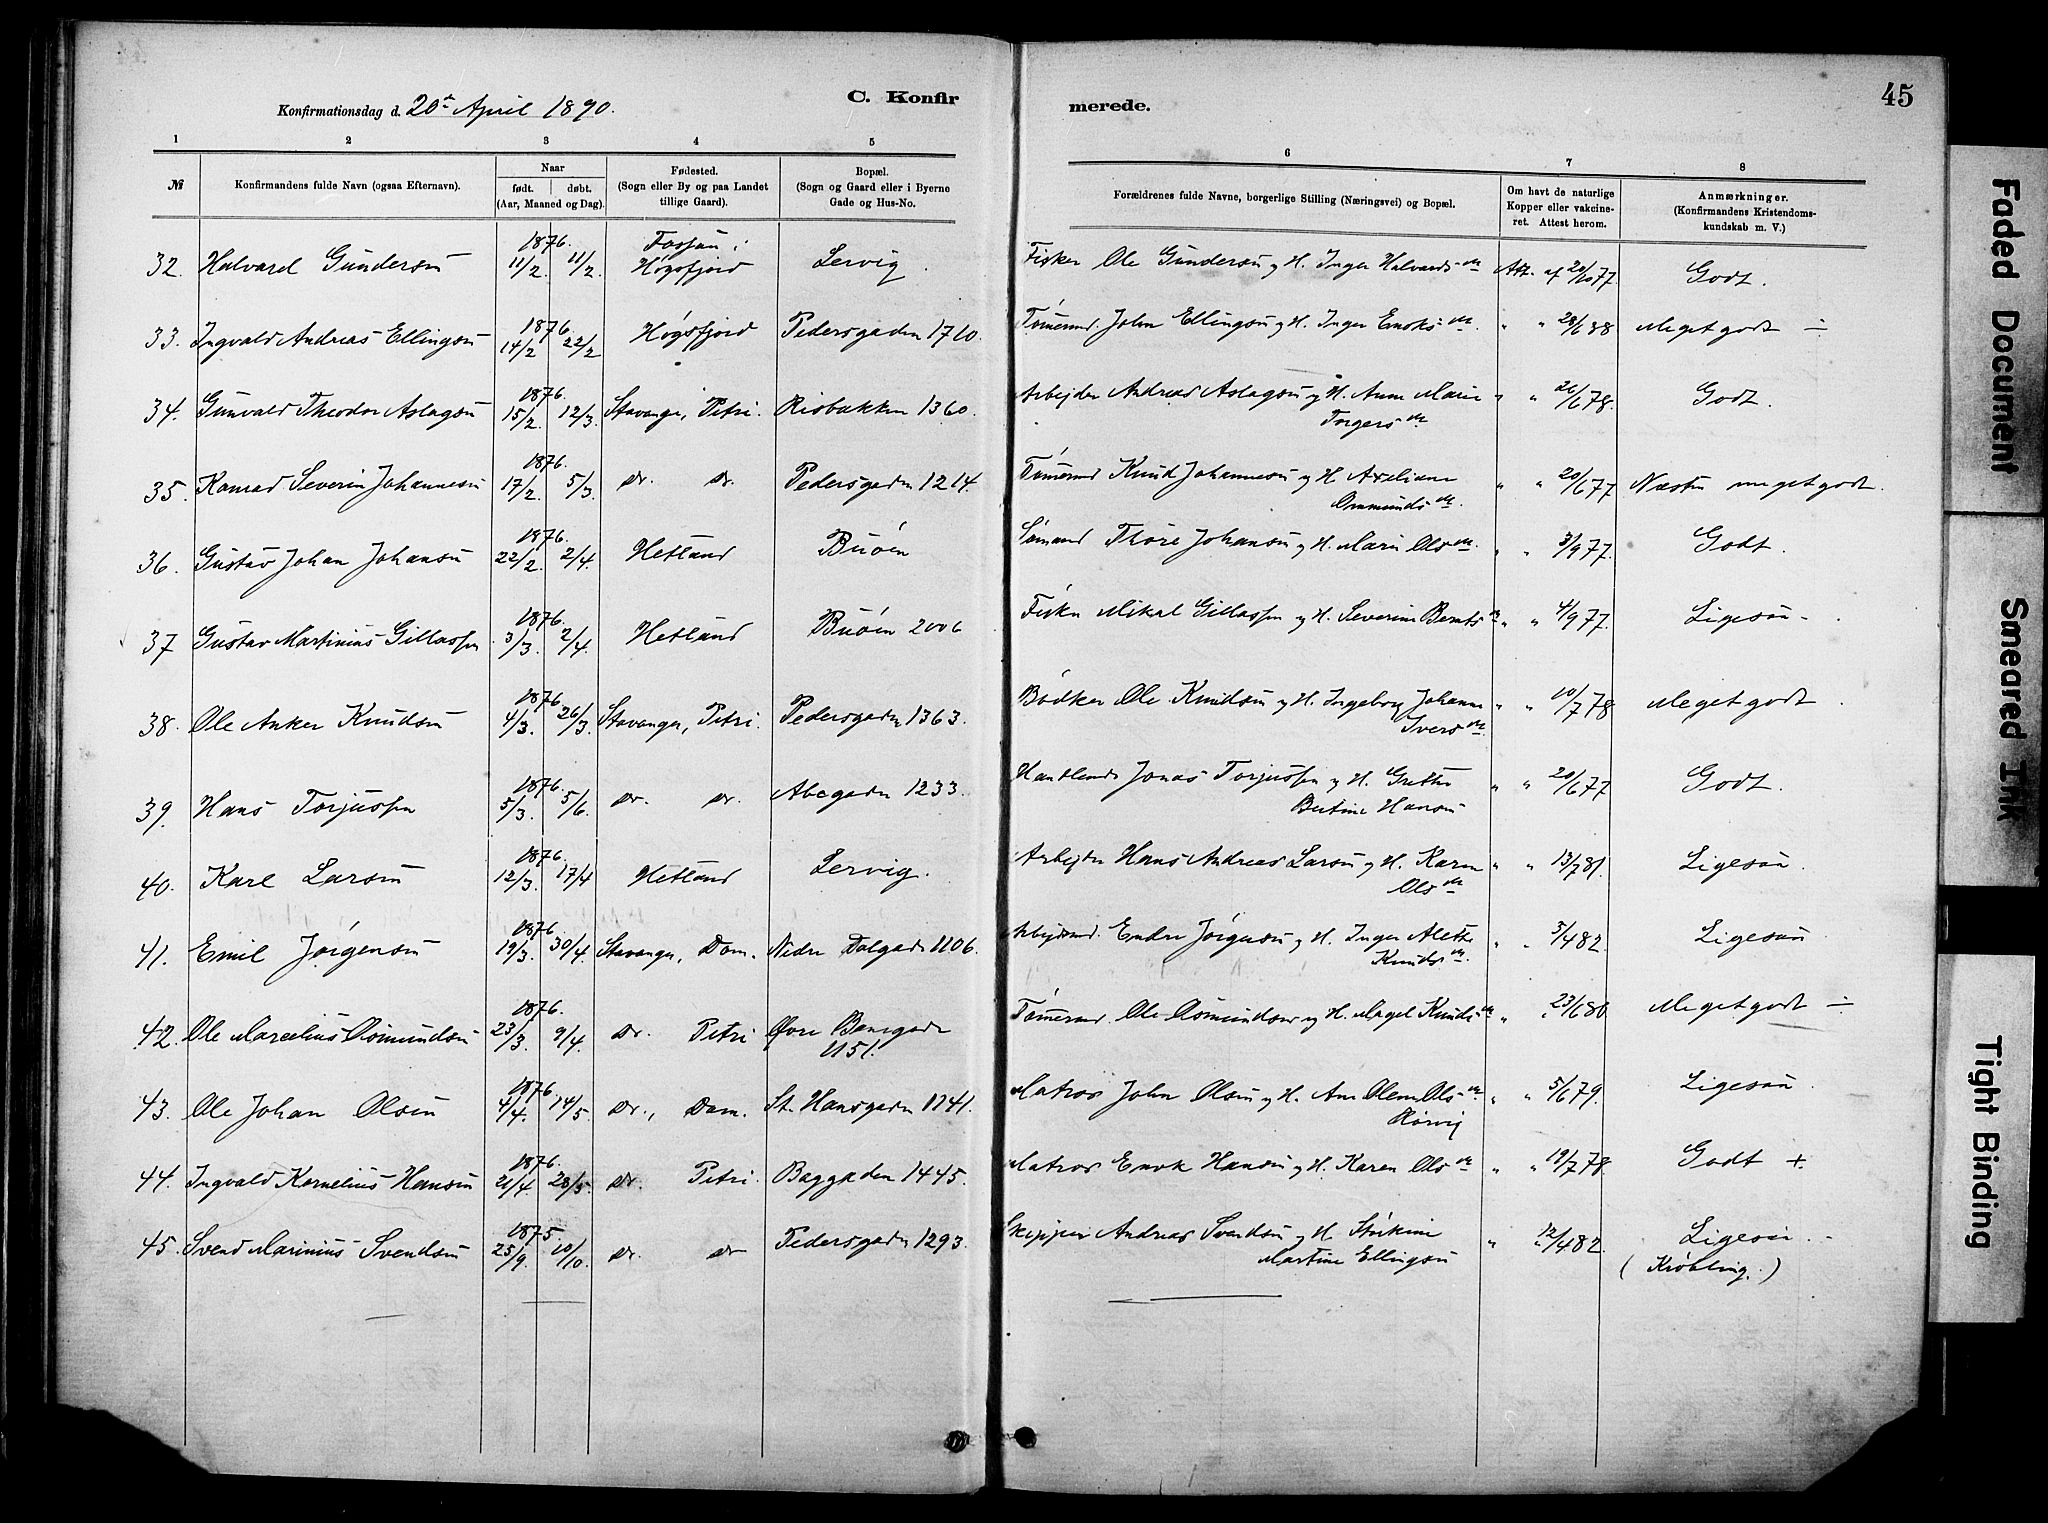 Konfirmationsdag d. 20de April 1890. C. Konfir merede. 45
1 2 3 4 5 6 7 8
№ Konfirmandens fulde Navn (ogsaa Efternavn).
Naar født. døbt. (Aar, Maaned og Dag).
Fødested. (Sogn eller By og paa Landet tillige Gaard).
Bopæl. (Sogn og Gaard eller i Byerne Gade og Hus-No.
Forældrenes fulde Navne, borgerlige Stilling (Næringsvei) og Bopæl.
Om havt de naturlige Kopper eller vakcineret. Attest herom.
Anmærkninger. (Konfirmandens Kristendomskundskab m. V.)
32. Halvard Gundersen 1876. 11/2 11/2 Fossan i Høgsfjord Lervig. Fisker Ole Gundersen og H. Inger Halvardsdr Att. af 20/10 77 Godt.
33. Ingvald Andreas Ellingsen 1876. 14/2 22/2 Høgsfjord Pedersgaden 1710. Tømermd. John Ellingsen og H. Inger Enoksdr " " 28/6 88 Meget godt ÷
34. Gunvald Theodor Aslagsen 1876. 15/2 12/3. Stavanger, Petri. Risbakken 1360. Arbejder Andreas Aslagsen og H. Anne Marie Torgersdr " " 26/6 78. Godt.
35. Konrad Severin Johannesen 1876. 17/2 5/3. do. do. Pedersgaden 1214. Tømermd Knud Johannesen og H. Axeliane Ommundsdr. " " 20/6 77 Næsten meget godt.
36. Gustav Johan Johansen 1876. 22/2. 2/4. Hetland Buøen Sømand Thore Johansen og H. Marie Olsdr. " " 3/9 77. Godt.
37 Gustav Martinius Gillassen 1876. 3/3. 2/4. Hetland Buøen 2006 Fisker Mikal Gillassen og H. Severine Berntsdr " " 4/9 77. Ligesaa -
38. Ole Anker Knudsen 1876. 4/3. 26/3. Stavanger, Petri. Pedersgaden 1363. Bødker Ole Knudsen og H. Ingeborg Johanne Iversdr. " " 10/7 78 Meget godt.
39. Hans Torjussen 1876. 5/3. 5/6. do. do. Abegaden 1233. Handlende Jonas Torjussen og H. Grethe Bertine Hansen " " 20/6 77 Godt.
40. Karl Larsen 1876. 12/3. 17/4 Hetland Lervig. Arbejder Hans Andreas Larsen og H. Karen Olsdr " " 13/7 81. Ligesaa.
41. Emil Jørgensen 1876 19/3. 30/4. Stavanger, Dom. Nedre Dalgade 1106. Arbejdsmd. Endre Jørgensen og H. Inger Alette Knudsdr. " " 3/4 82 Ligesaa
42. Ole Marcelius Osmundsen 1876. 23/3. 9/4. do. Petri Øvre Banegade 1151. Tømermd. Ole Osmundsen og H. Magel Knudsdr " " 23/6 80 Meget godt ÷
43. Ole Johan Olsen 1876 4/4. 14/5. do., Dom. St. Hansgaden 1141. Matros John Olsen og H. Ane Olene Olsdr. Rørvig " " 5/6 79. Ligesaa.
44. Ingvald Kornelius Hansen 1876. 21/4 28/5. do. Petri. Baggaden 1445. Matros Enok Hansen og H. Karen Olsdr " " 19/7 78. Godt +.
45. Svend Marinius Svendsen 1875. 25/9. 10/10. do. do Pedersgaden 1293. Skipper Andreas Svendsen og H. Martine Ellingsen " " 12/4 82. Ligesaa. - (Krøbling.)
Faded Document
Smeared Ink
Tight Binding